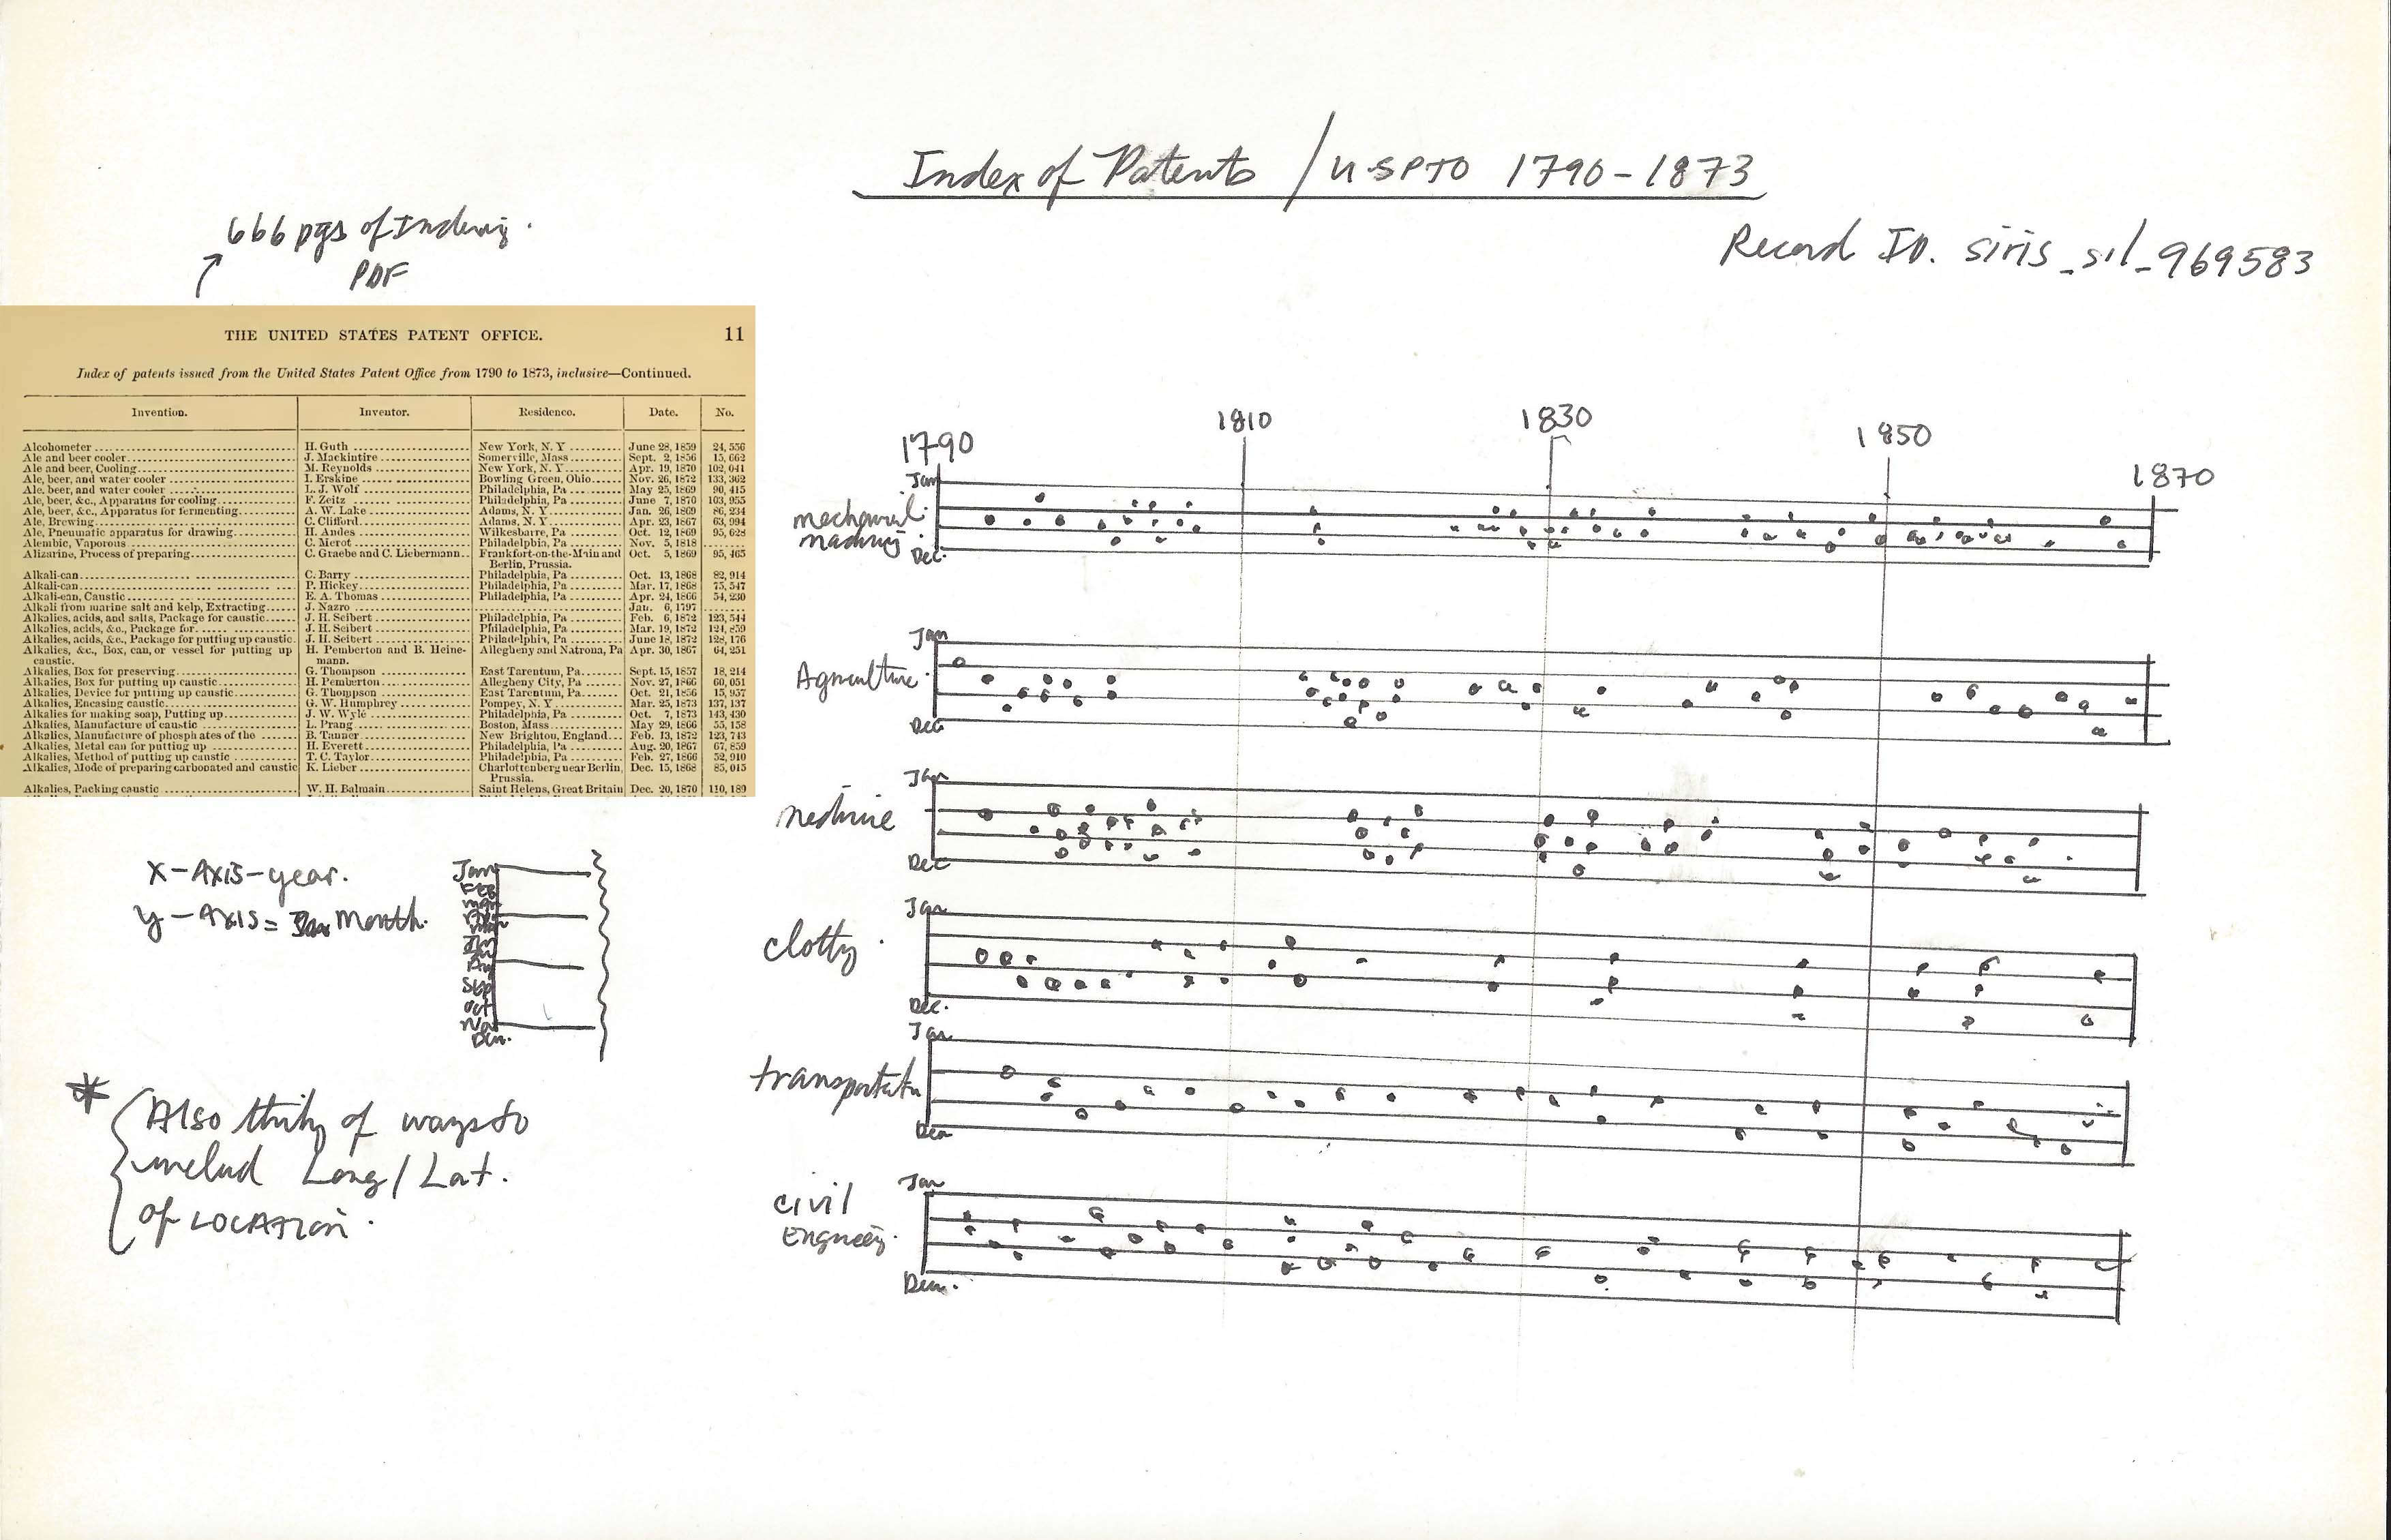 Index of Patents / USPTO 1790-1873
Record ID. siris_sil_969583
666 pgs of Indexing.
PDF
THE UNITED STATES PATENT OFFICE. 11
Index of patents issued from the United States Patent Office from 1790 to 1873, inclusive—Continued.
Invention. Inventor. Residence. Date. No.
Alcohometer H. Guth New York, N. Y June 28, 1859 24, 556
Ale and beer cooler J. Mackintire Somerville, Mass Sept. 2, 1856 15, 662
Ale and beer, Cooling M. Reynolds New York, N. Y Apr. 19, 1870 102, 041
Ale, beer, and water cooler I. Erskine Bowling Green, Ohio Nov. 26, 1872 133, 362
Ale, beer, and water cooler L. J. Wolf Philadelphia, Pa May 25, 1869 90, 415
Ale, beer, &c., Apparatus for cooling F. Zeitz Philadelphia, Pa June 7, 1870 103, 955
Ale, beer, &c., Apparatus for fermenting A. W. Lake Adams, N. Y Jan. 26, 1869 86, 234
Ale, Brewing C. Clifford Adams, N. Y Apr. 23, 1867 63, 994
Ale, Pneumatic apparatus for drawing H. Andes Wilkesbarre, Pa Oct. 12, 1869 95, 628
Alembic, Vaporous C. Merot Philadelphia, Pa Nov. 5, 1818
Alizarine, Process of preparing C. Graebe and C. Liebermann Frankfort-on-the-Main and Oct. 5, 1869 95, 465
Berlin, Prussia.
Alkali-can C. Barry Philadelphia, Pa Oct. 13, 1868 82, 914
Alkali-can P. Hickey Philadelphia, Pa Mar. 17, 1868 75, 547
Alkali-can, Caustic E. A. Thomas Philadelphia, Pa Apr. 24, 1866 54, 230
Alkali from marine salt and kelp, Extracting J. Nazro Jan. 6, 1797
Alkalies, acids, and salts, Package for caustic J. H. Seibert Philadelphia, Pa Feb. 6, 1872 123, 544
Alkalies, acids, &c., Package for J. H. Seibert Philadelphia, Pa Mar. 19, 1872 124, 859
Alkalies, acids, &c., Package for putting up caustic. J. H. Seibert Philadelphia, Pa June 18, 1872 128, 176
Alkalies, &c., Box, can, or vessel for putting up H. Pemberton and B. Heine- Allegheny and Natrona, Pa Apr. 30, 1867 64, 251
caustic. mann.
Alkalies, Box for preserving G. Thompson East Tarentum, Pa Sept. 15, 1857 18, 214
Alkalies, Box for putting up caustic H. Pemberton Allegheny City, Pa Nov. 27, 1866 60, 051
Alkalies, Device for putting up caustic G. Thompson East Tarentum, Pa Oct. 21, 1856 15, 957
Alkalies, Encasing caustic G. W. Humphrey Pompey, N. Y Mar. 25, 1873 137, 137
Alkalies for making soap, Putting up J. W. Wylé Philadelphia, Pa Oct. 7, 1873 143, 430
Alkalies, Manufacture of caustic L. Prang Boston, Mass May 29, 1866 55, 158
Alkalies, Manufacture of phosphates of the B. Tanner New Brighton, England Feb. 13, 1872 123, 743
Alkalies, Metal can for putting up H. Everett Philadelphia, Pa Aug. 20, 1867 67, 859
Alkalies, Method of putting up caustic T. C. Taylor Philadelphia, Pa Feb. 27, 1866 52, 910
Alkalies, Mode of preparing carbonated and caustic K. Lieber Charlottenberg near Berlin, Dec. 15, 1868 85, 015
Prussia.
Alkalies, Packing caustic W. H. Balmain Saint Helens, Great Britain Dec. 20, 1870 110, 189
1790 1810 1830 1850 1870
Jan
mechanical
Dec.
Jan
Agriculture
Dec
Jan
medicine
Dec
Jan
clothg.
Dec.
Jan
transportatn
Dec
Jan
civil
Engineeg.
Dec.
X-AXIS-year.
Y-AXIS= Month.
Jan
Feb
mar
Jun
Sep
Oct
Nov
Dec.
* Also think of ways to
includ Long/Lat.
of LOCATION.